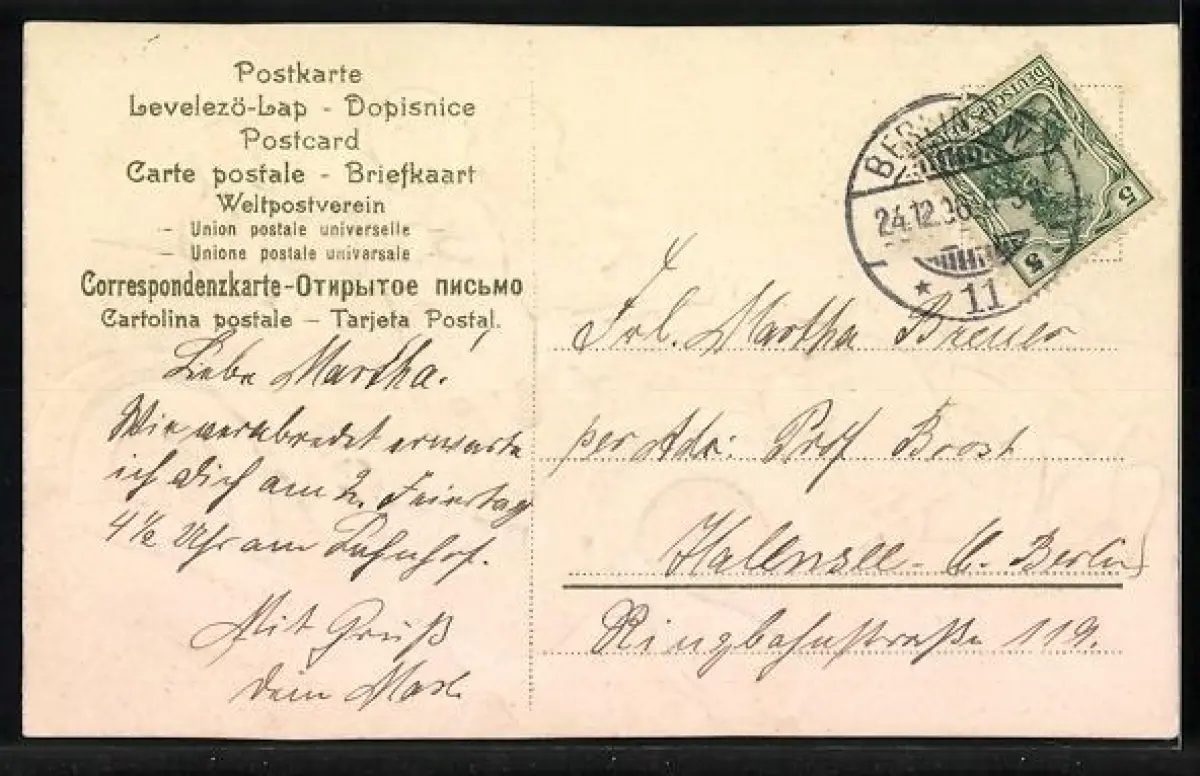 Postkarte
Levelező-Lap - Dopisnice
Postcard
Carte postale - Briefkaart
Weltpostverein
- Union postale universelle -
- Unione postale universale -
Correspondenzkarte-Открытое письмо
Cartolina postale - Tarjeta Postal.
Liebe Martha.
Wie verabredet erwarte
ich Dich am 2. Feiertag
4 1/2 Uhr am Bahnhof.
Mit Gruß
Dein
BERLIN S.W.
24.12.06
* 11
DEUTSCHES
5
5
Frl. Martha
per Adr: Prof Brost
Halensee b. Berlin
Ringbahnstraße 119.